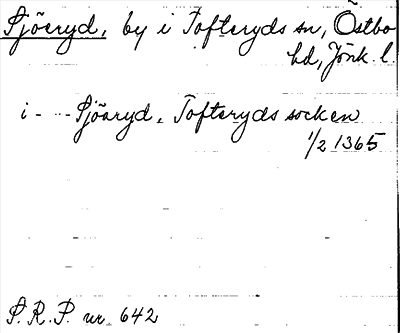 Sjöeryd, by i Tofteryds sn, Östbo
hd, Jönk. l.
i - - - Sjöaryd, Tofteryds socken
1/2 1365
S. R. P. nr. 642